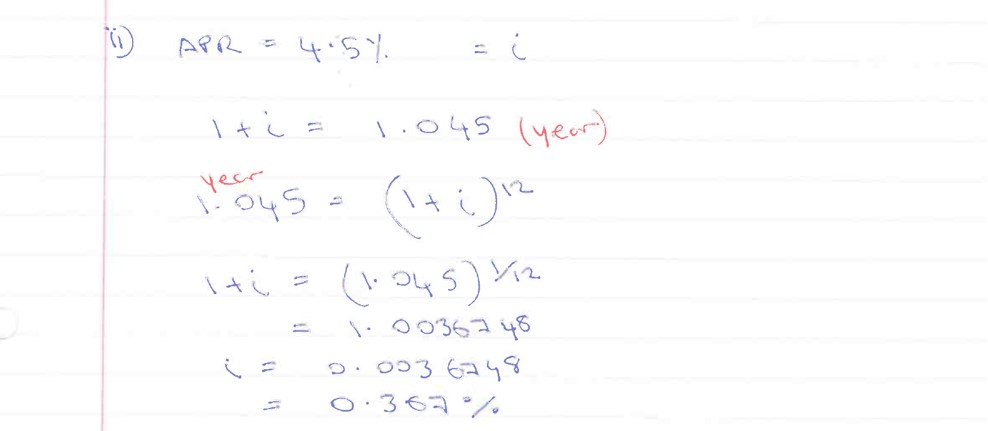 ii) APR = 4.5% = i
1+i = 1.045 (year)
year
1.045 = (1+i)^12
1+i = (1.045)^1/12
= 1.0036748
i = 0.0036748
= 0.367%